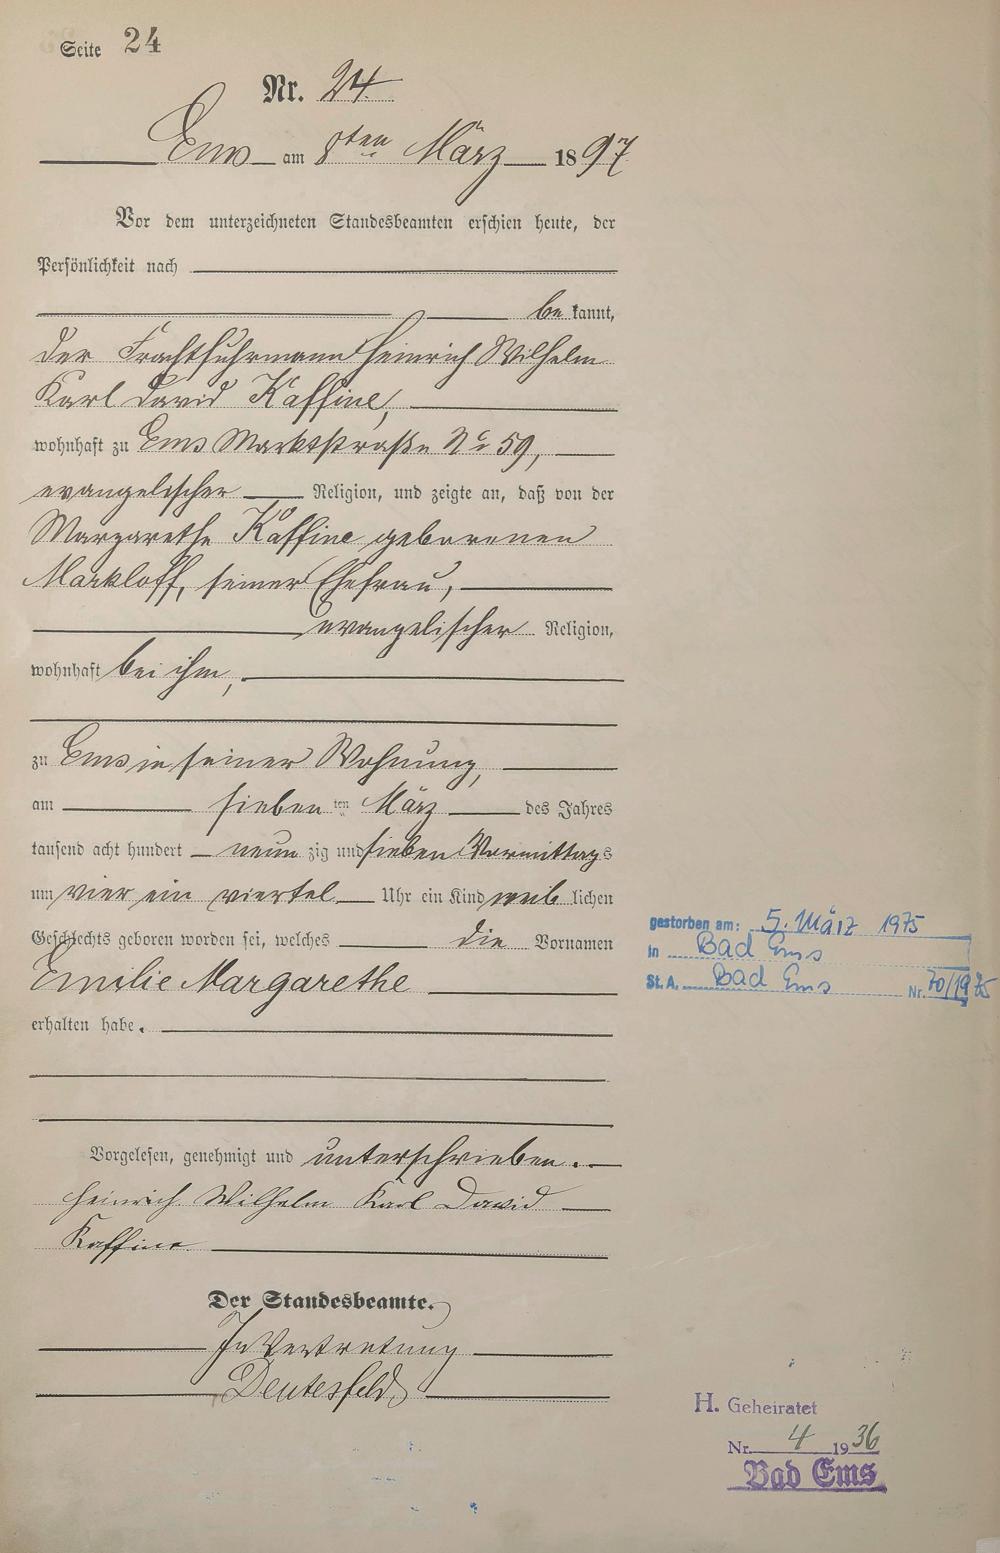 Seite 24
Nr. 24
Ems am 8ten März 1897
Vor dem unterzeichneten Standesbeamten erschien heute, der
Persönlichkeit nach
bekannt,
der Frachtfuhrmann Heinrich Wilhelm
Karl David Kaffine,
wohnhaft zu Ems Marktstraße No 59,
evangelischer Religion, und zeigte an, daß von der
Margarethe Kaffine geborenen
Markloff, seiner Ehefrau,
evangelischer Religion,
wohnhaft bei ihm,
zu Ems in seiner Wohnung,
am siebenten März des Jahres
tausend acht hundert neunzig und sieben Vormittags
um vier ein viertel Uhr ein Kind weiblichen
Geschlechts geboren worden sei, welches die Vornamen
Emilie Margarethe
erhalten habe.
Vorgelesen, genehmigt und unterschrieben.
Heinrich Wilhelm Karl David
Kaffine
Der Standesbeamte.
In Vertretung
Deutesfeld
gestorben am: 5. März 1975
in Bad Ems
St. A. Bad Ems Nr. 70/1975
H. Geheiratet
Nr. 4 1936
Bad Ems